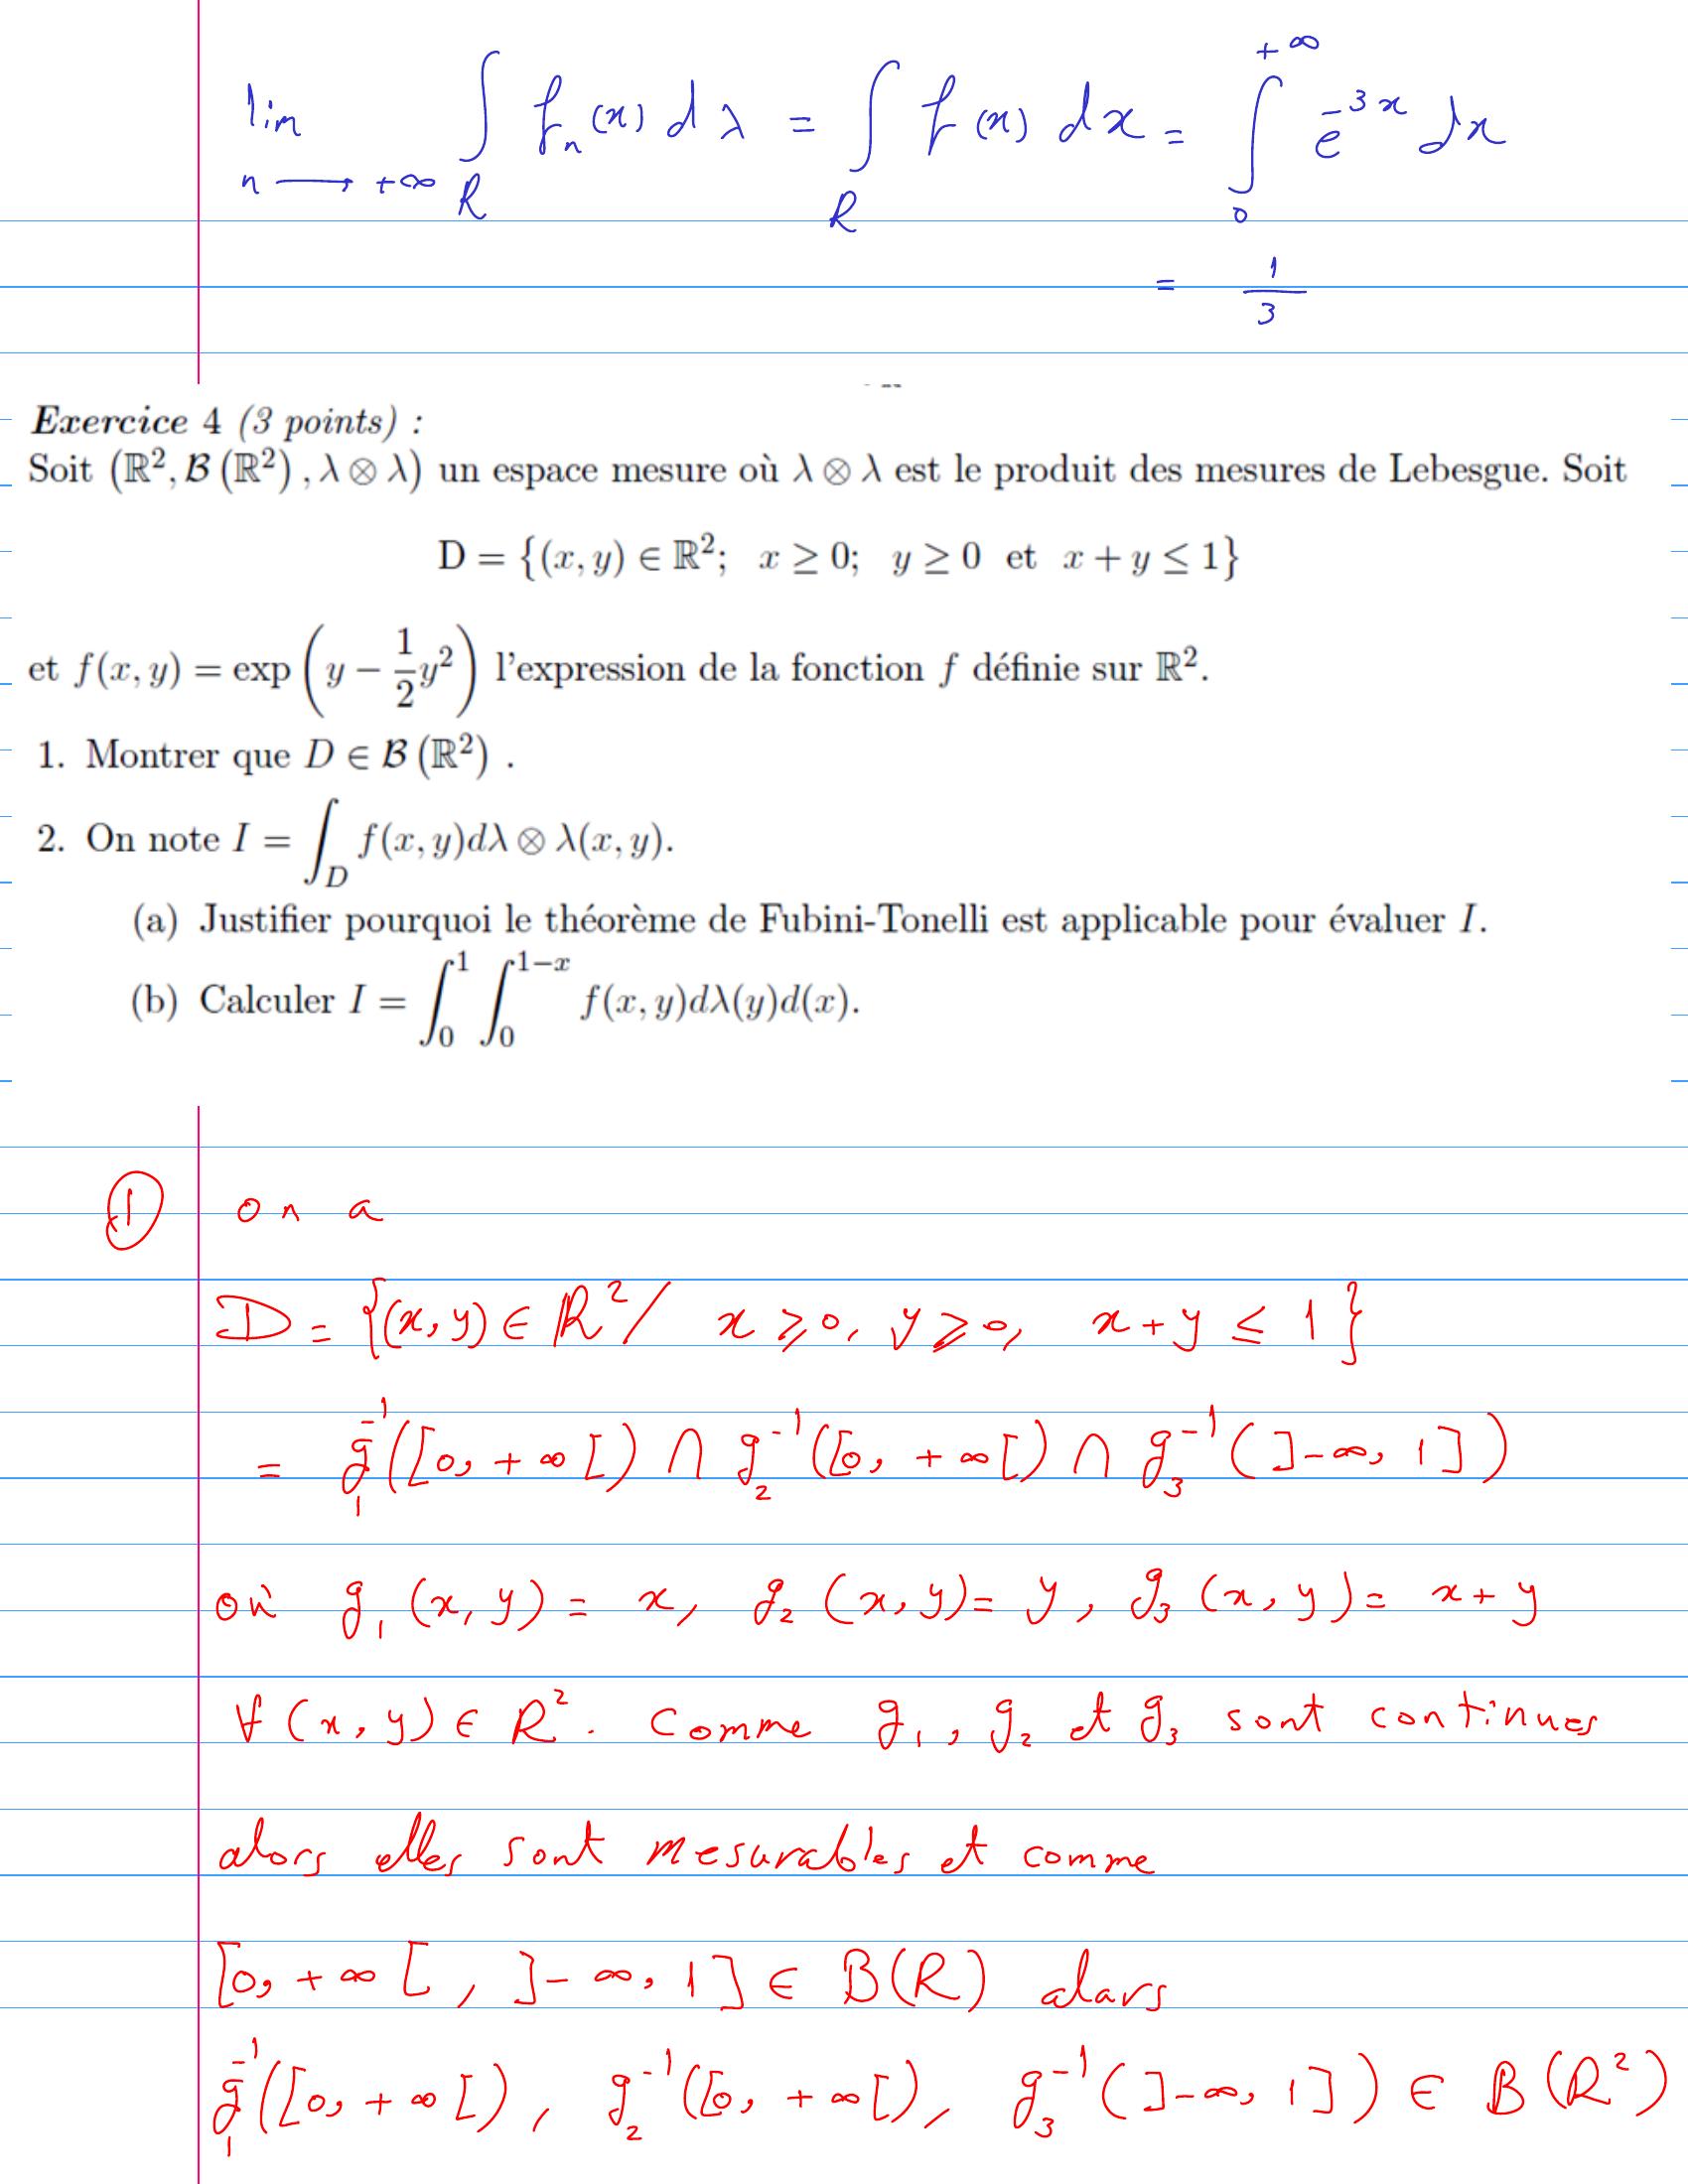 lim_{n ⟶ +∞} ∫_R f_n(x) dλ = ∫_R f(x) dx = ∫_0^{+∞} e^{-3x} dx
= 1/3
Exercice 4 (3 points) :
Soit (ℝ², ℬ(ℝ²), λ ⊗ λ) un espace mesure où λ ⊗ λ est le produit des mesures de Lebesgue. Soit
D = {(x, y) ∈ ℝ²; x ≥ 0; y ≥ 0 et x + y ≤ 1}
et f(x, y) = exp(y − 1/2 y²) l'expression de la fonction f définie sur ℝ².
1. Montrer que D ∈ ℬ(ℝ²) .
2. On note I = ∫_D f(x, y)dλ ⊗ λ(x, y).
(a) Justifier pourquoi le théorème de Fubini-Tonelli est applicable pour évaluer I.
(b) Calculer I = ∫_0^1 ∫_0^{1−x} f(x, y)dλ(y)d(x).
① on a
D = {(x, y) ∈ R² / x ⩾ 0, y ⩾ 0, x + y ≤ 1}
= g₁⁻¹([0, +∞[) ∩ g₂⁻¹([0, +∞[) ∩ g₃⁻¹(]-∞, 1])
où g₁(x, y) = x, g₂(x, y) = y, g₃(x, y) = x + y
∀(x, y) ∈ R². Comme g₁, g₂ et g₃ sont continues
alors elles sont mesurables et comme
[0, +∞[ , ]-∞, 1] ∈ B(R) alors
g₁⁻¹([0, +∞[), g₂⁻¹([0, +∞[), g₃⁻¹(]-∞, 1]) ∈ B(R²)